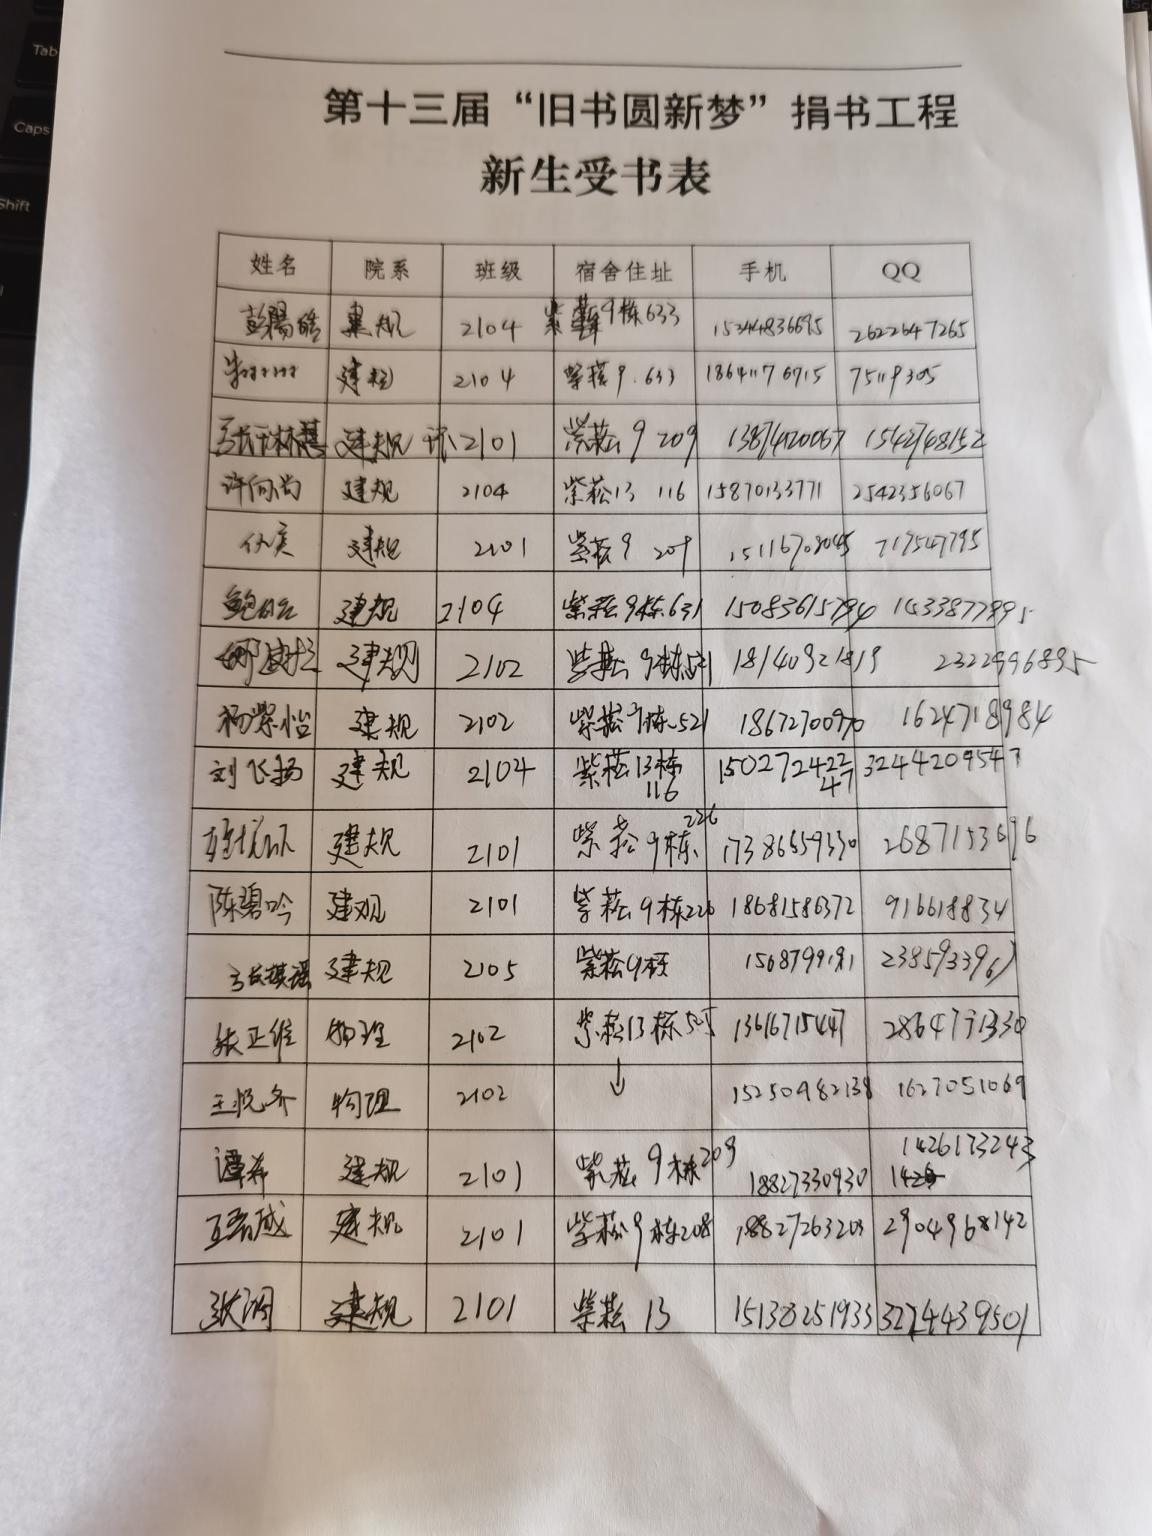 Tab
Caps
Shift
第十三届“旧书圆新梦”捐书工程
新生受书表
姓名 院系 班级 宿舍住址 手机 QQ
建规 2104 紫菘9栋633 15344836695 2622647265
建规 2104 紫菘9.633 75119305
建规 2101 紫菘9 209 13874120067 1542748152
许向尚 建规 2104 紫菘13 116 15870133771 2542356067
建规 2101 紫菘9 209 15116708045 717547795
建规 2104 紫菘9栋631 15083615794
建规 2102 18140921819 2322996895
杨紫怡 建规 2102 紫菘9栋521 18672700970 1624718984
刘飞扬 建规 2104 紫菘13栋116 15027242247 3244209547
建规 2101 紫菘9栋226 17386659330 2687153696
陈碧吟 建规 2101 紫菘9栋226 18681586372 916618834
建规 2105 紫菘9栋
张正维 物理 2102 紫菘13栋505 13616715447 2864791330
王悦齐 物理 2102 ↓ 15250982138 1627051069
谭希 建规 2101 紫菘9栋209 18827330930 1426173243
建规 2101 紫菘9栋208 18827263203 2904968142
建规 2101 紫菘13 15138251933 3274439501